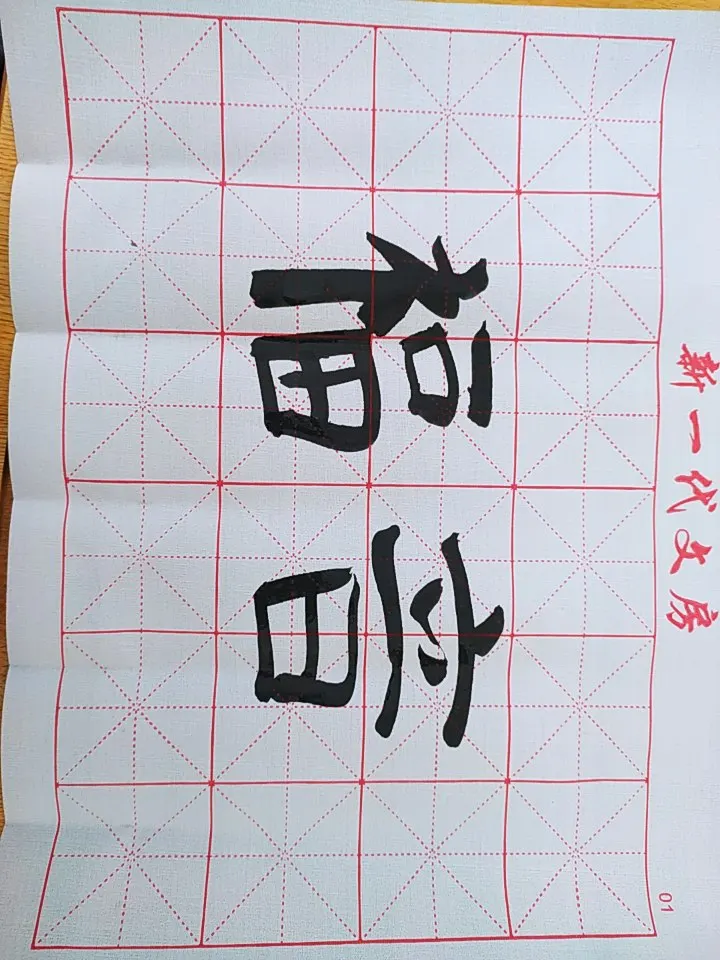 新一代文房
福音
01